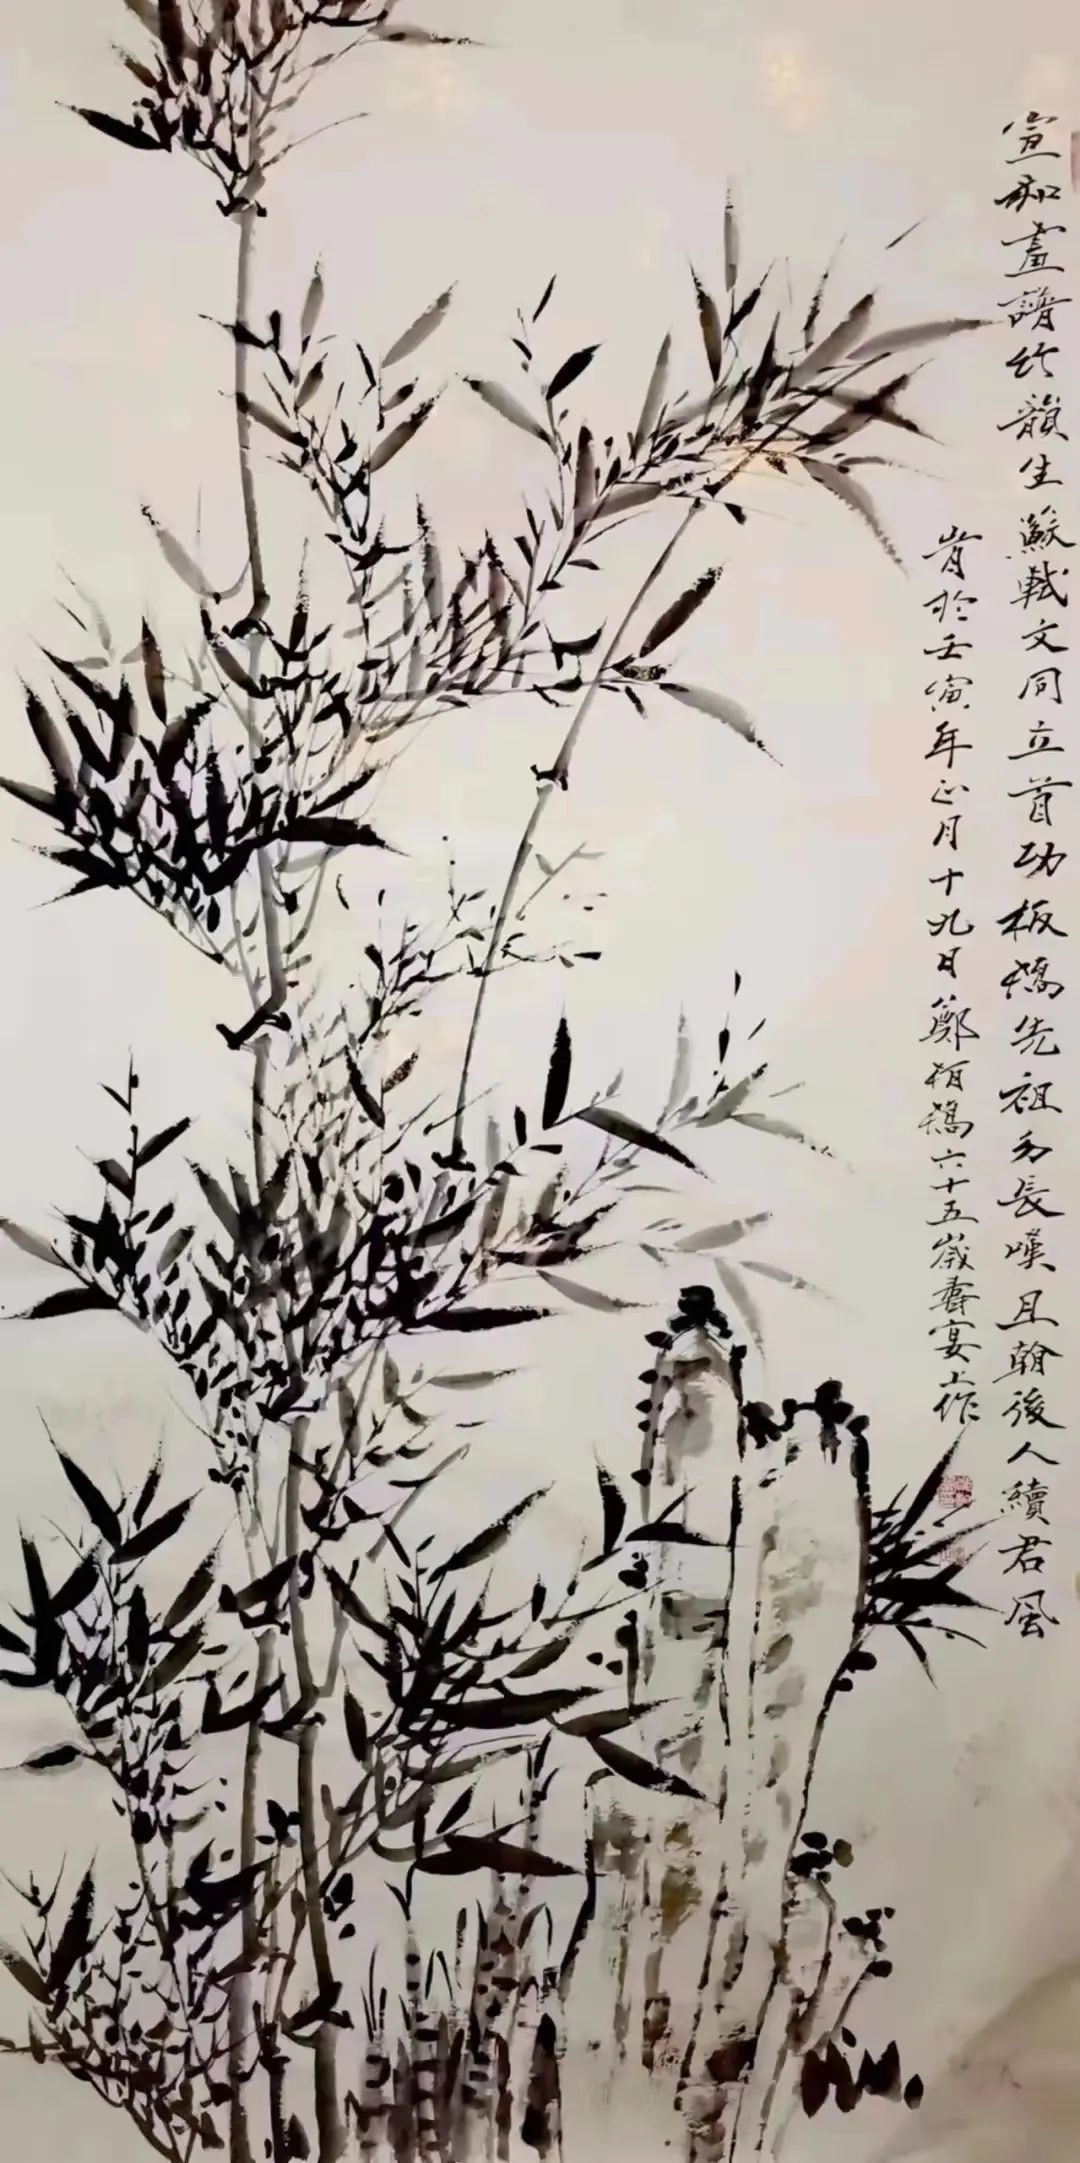 宣和畫譜竹韻生蘇軾文同立首功板橋先祖勿長嘆且翰後人續君風
旹於壬寅年正月十九日鄭栢橋六十五歲壽宴上作